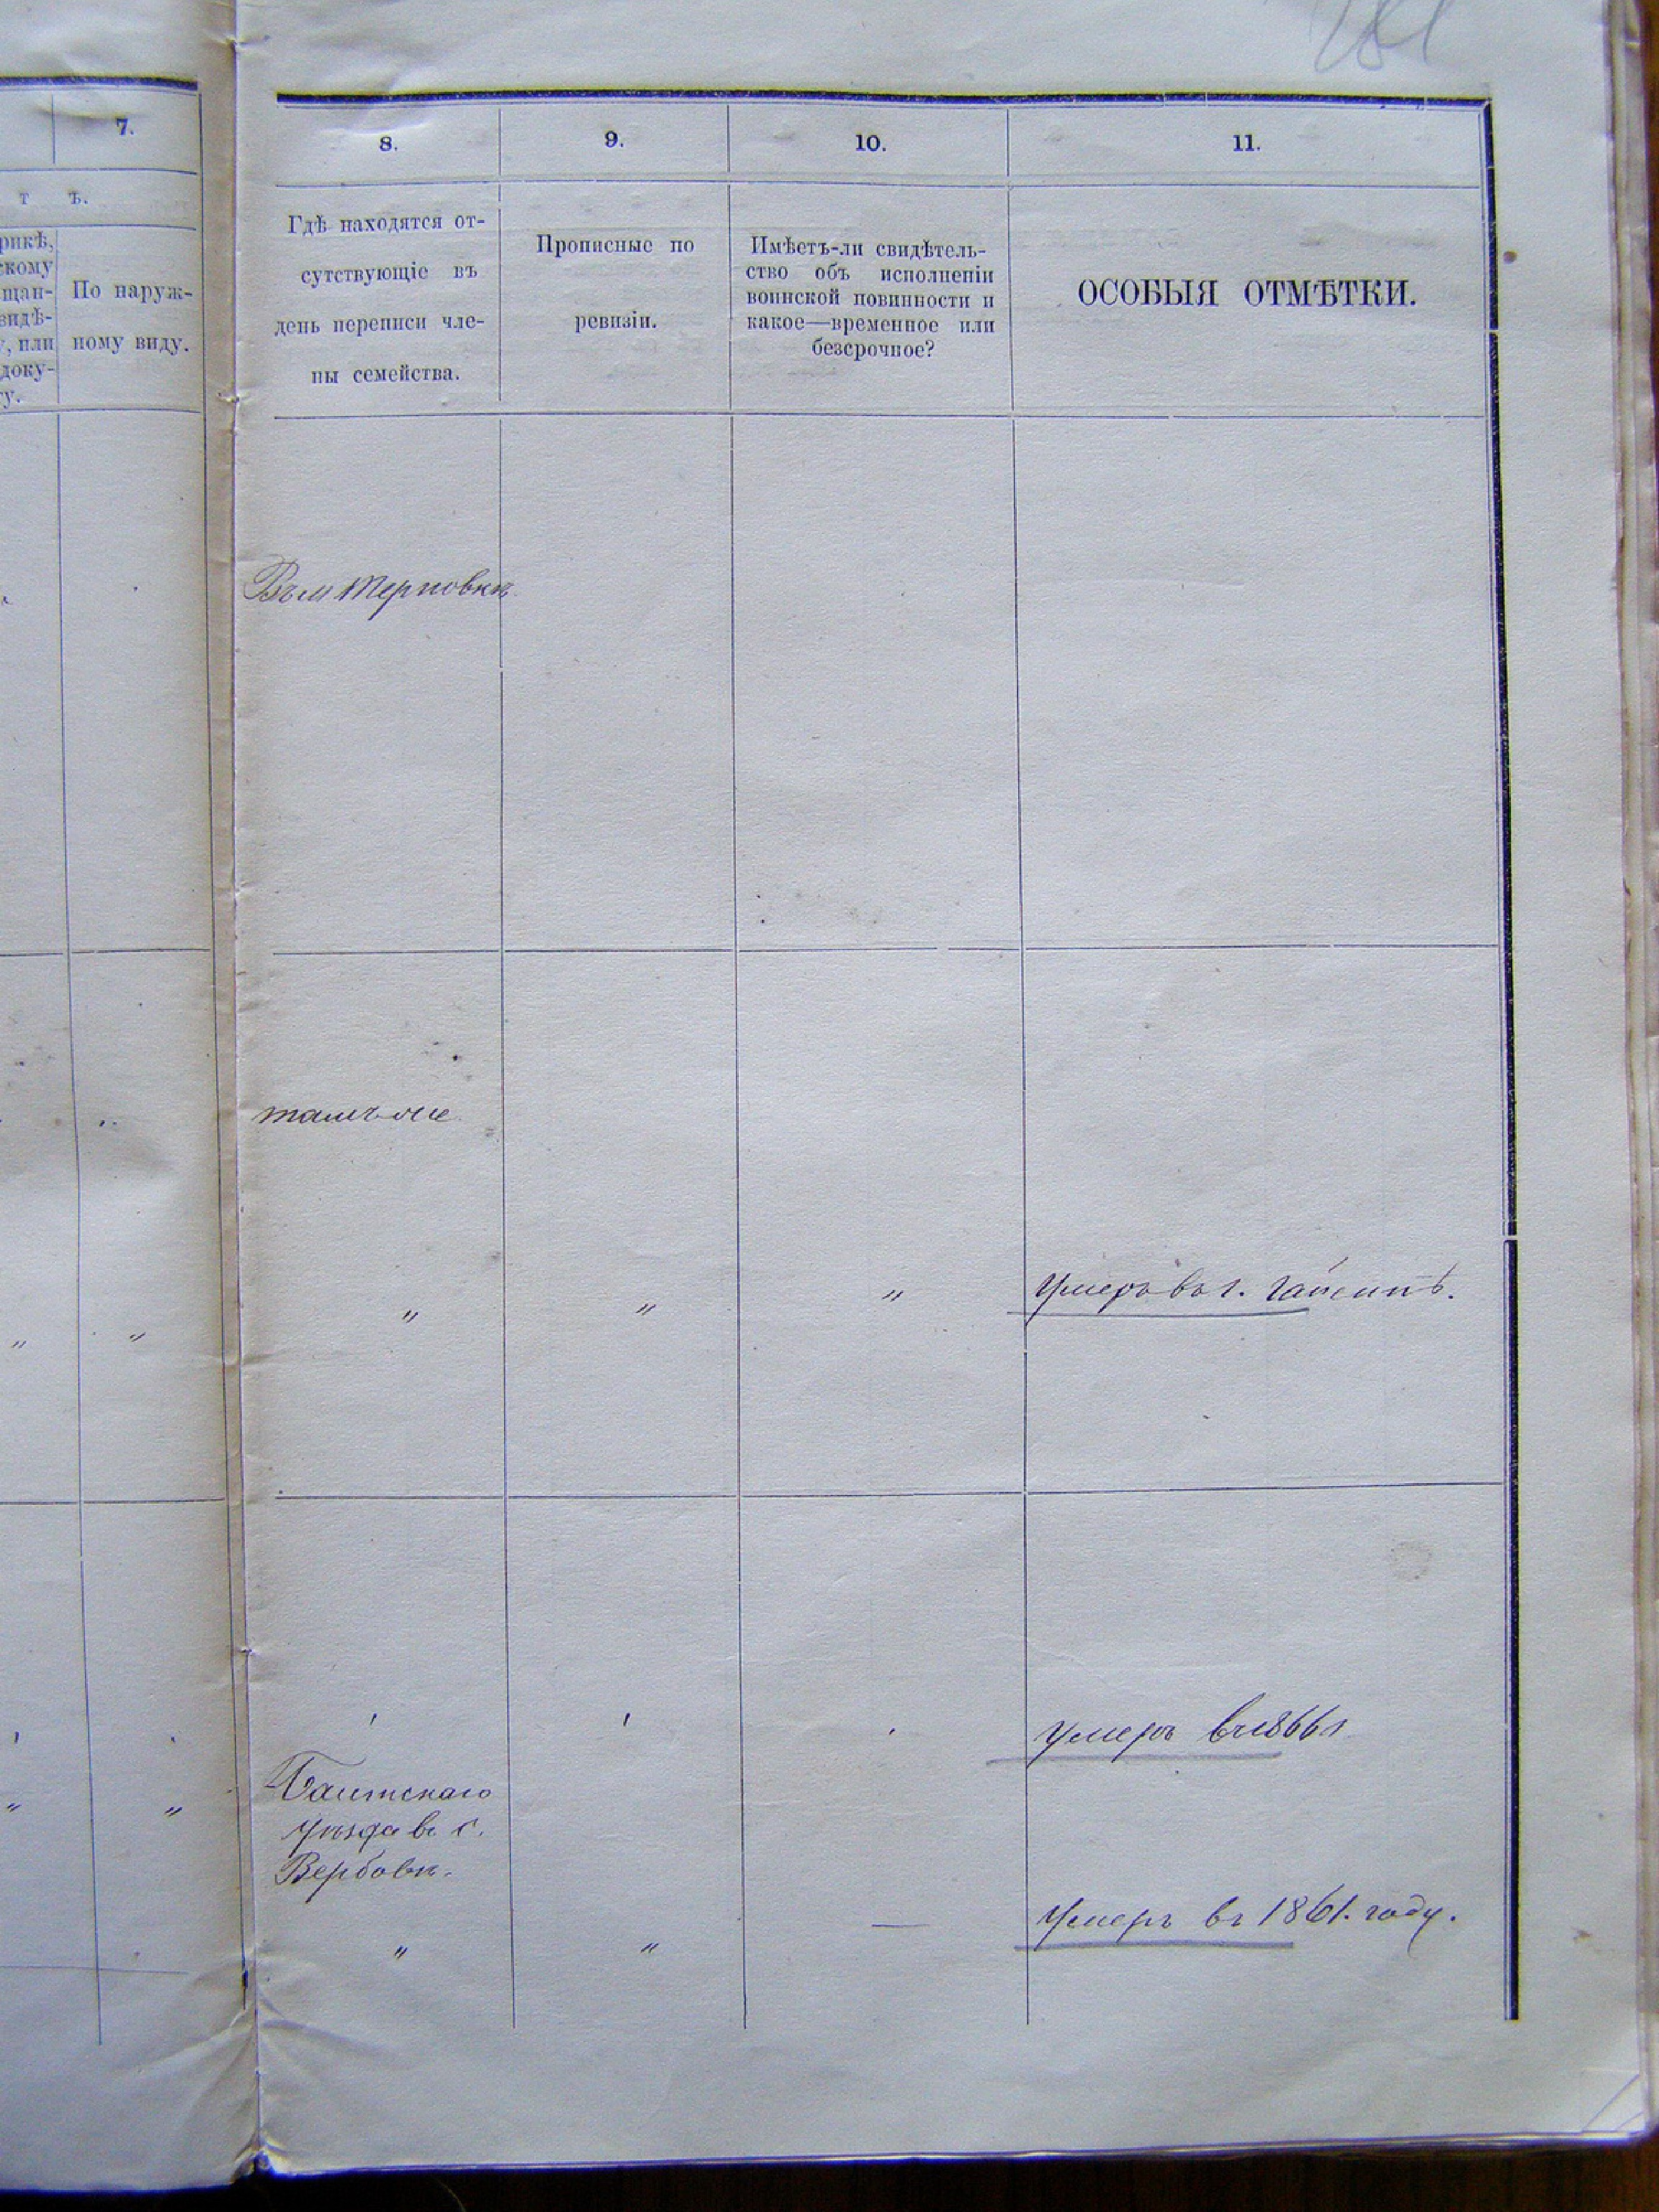 281
7.
т ъ.
рикѣ,
скому
щан-
видѣ-
у, или
доку-
ту.
По наруж-
ному виду.
8.
9.
10.
11.
Гдѣ находятся от-
сутствующіе въ
день переписи чле-
ны семейства.
Прописные по
ревизіи.
Имѣетъ-ли свидѣтель-
ство объ исполненіи
воинской повинности и
какое—временное или
безсрочное?
ОСОБЫЯ ОТМѢТКИ.
Въ м Терновкѣ
тамъ-же
" " " " "
Умеръ въ г. Гайсинѣ.
умеръ въ 1866 г
Балтскаго
уѣзда въ с.
Вербовк.
" "
" " —
Умеръ въ 1861. году.